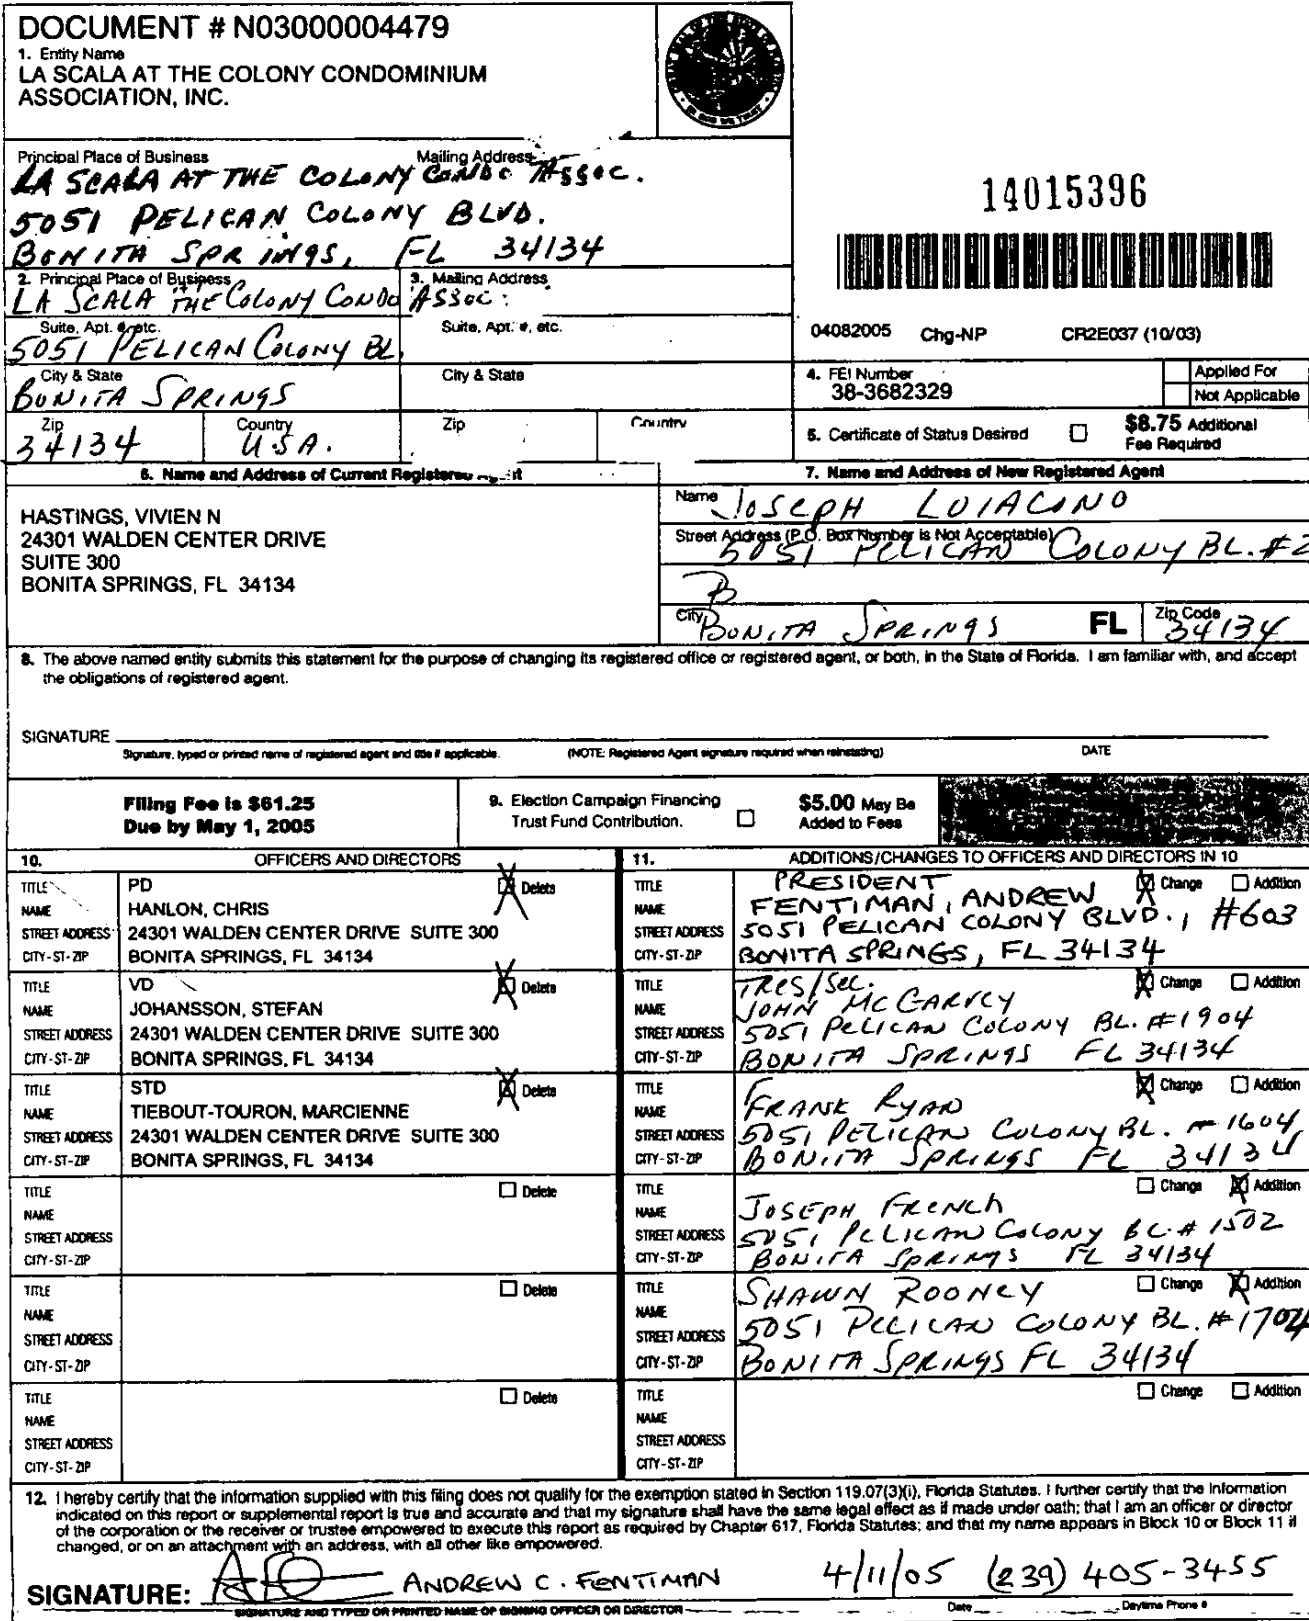 DOCUMENT # N03000004479
1. Entity Name
LA SCALA AT THE COLONY CONDOMINIUM
ASSOCIATION, INC.
Principal Place of Business Mailing Address
LA SCALA AT THE COLONY CONDO ASSOC.
5051 PELICAN COLONY BLVD.
BONITA SPRINGS, FL 34134
2. Principal Place of Business 3. Mailing Address
LA SCALA THE COLONY CONDO ASSOC.
Suite, Apt. #, etc. Suite, Apt. #, etc.
5051 PELICAN COLONY BL.
City & State City & State
BONITA SPRINGS
Zip Country Zip Country
34134 U.S.A.
14015396
04082005 Chg-NP CR2E037 (10/03)
4. FEI Number Applied For
38-3682329 Not Applicable
5. Certificate of Status Desired $8.75 Additional
Fee Required
6. Name and Address of Current Registered Agent
HASTINGS, VIVIEN N
24301 WALDEN CENTER DRIVE
SUITE 300
BONITA SPRINGS, FL 34134
7. Name and Address of New Registered Agent
Name JOSEPH LOIACONO
Street Address (P.O. Box Number is Not Acceptable)
5051 PELICAN COLONY BL. #2
B
City BONITA SPRINGS FL Zip Code 34134
8. The above named entity submits this statement for the purpose of changing its registered office or registered agent, or both, in the State of Florida. I am familiar with, and accept
the obligations of registered agent.
SIGNATURE
Signature, typed or printed name of registered agent and title if applicable. (NOTE: Registered Agent signature required when reinstating) DATE
Filing Fee is $61.25
Due by May 1, 2005
9. Election Campaign Financing
Trust Fund Contribution.
$5.00 May Be
Added to Fees
10. OFFICERS AND DIRECTORS
TITLE PD Delete
NAME HANLON, CHRIS
STREET ADDRESS 24301 WALDEN CENTER DRIVE SUITE 300
CITY-ST-ZIP BONITA SPRINGS, FL 34134
TITLE VD Delete
NAME JOHANSSON, STEFAN
STREET ADDRESS 24301 WALDEN CENTER DRIVE SUITE 300
CITY-ST-ZIP BONITA SPRINGS, FL 34134
TITLE STD Delete
NAME TIEBOUT-TOURON, MARCIENNE
STREET ADDRESS 24301 WALDEN CENTER DRIVE SUITE 300
CITY-ST-ZIP BONITA SPRINGS, FL 34134
TITLE Delete
NAME
STREET ADDRESS
CITY-ST-ZIP
TITLE Delete
NAME
STREET ADDRESS
CITY-ST-ZIP
TITLE Delete
NAME
STREET ADDRESS
CITY-ST-ZIP
11. ADDITIONS/CHANGES TO OFFICERS AND DIRECTORS IN 10
TITLE PRESIDENT Change Addition
NAME FENTIMAN, ANDREW
STREET ADDRESS 5051 PELICAN COLONY BLVD., #603
CITY-ST-ZIP BONITA SPRINGS, FL 34134
TITLE TRES/SEC. Change Addition
NAME JOHN MCGARVEY
STREET ADDRESS 5051 PELICAN COLONY BL. #1904
CITY-ST-ZIP BONITA SPRINGS FL 34134
TITLE Change Addition
NAME FRANK RYAN
STREET ADDRESS 5051 PELICAN COLONY BL. #1604
CITY-ST-ZIP BONITA SPRINGS FL 34134
TITLE Change Addition
NAME JOSEPH FRENCH
STREET ADDRESS 5051 PELICAN COLONY BL. #1502
CITY-ST-ZIP BONITA SPRINGS FL 34134
TITLE Change Addition
NAME SHAWN ROONEY
STREET ADDRESS 5051 PELICAN COLONY BL. #1704
CITY-ST-ZIP BONITA SPRINGS FL 34134
TITLE Change Addition
NAME
STREET ADDRESS
CITY-ST-ZIP
12. I hereby certify that the information supplied with this filing does not qualify for the exemption stated in Section 119.07(3)(i), Florida Statutes. I further certify that the information
indicated on this report or supplemental report is true and accurate and that my signature shall have the same legal effect as if made under oath; that I am an officer or director
of the corporation or the receiver or trustee empowered to execute this report as required by Chapter 617, Florida Statutes; and that my name appears in Block 10 or Block 11 if
changed, or on an attachment with an address, with all other like empowered.
SIGNATURE: ANDREW C. FENTIMAN 4/11/05 (239) 405-3455
SIGNATURE AND TYPED OR PRINTED NAME OF SIGNING OFFICER OR DIRECTOR Date Daytime Phone #